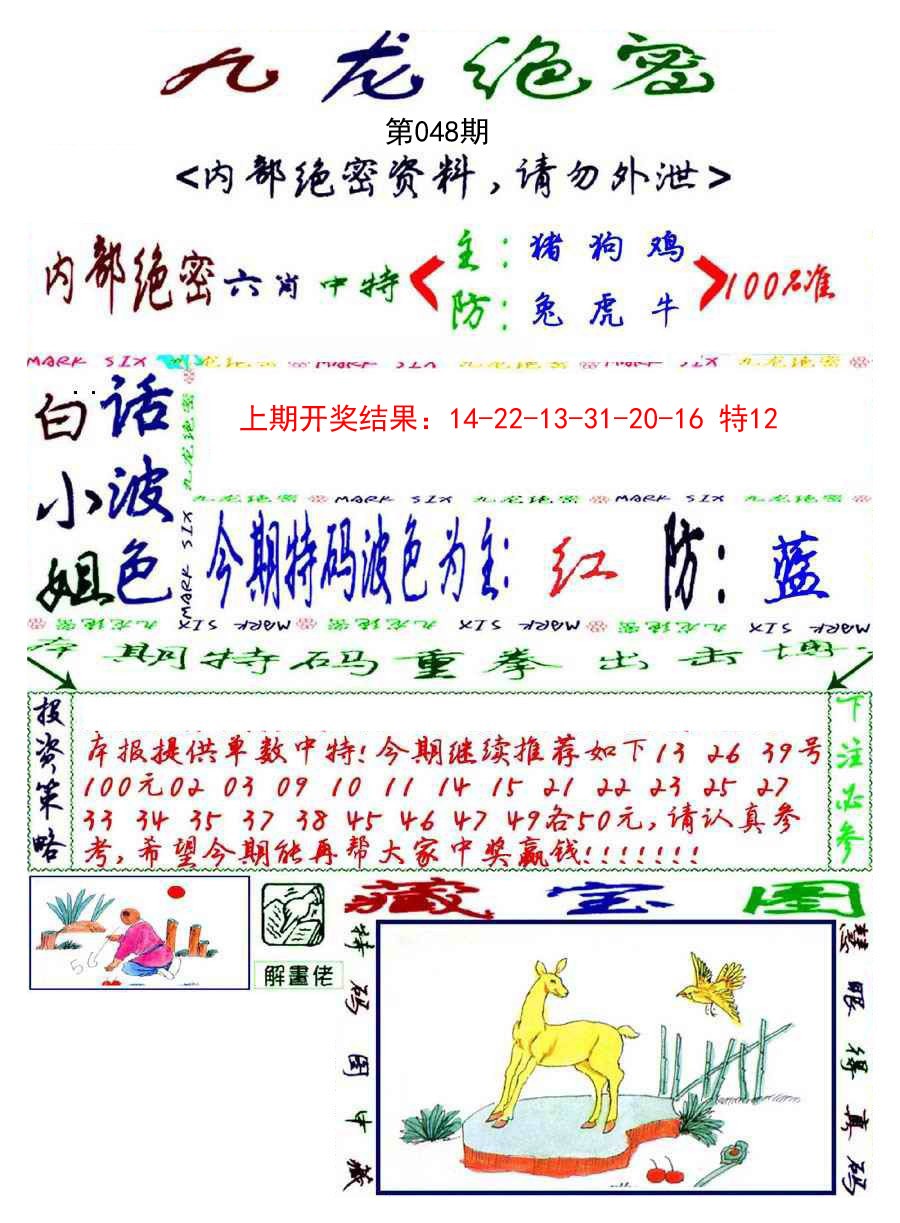 九龙绝密
第048期
<内部绝密资料,请勿外泄>
内部绝密六肖中特
主:猪狗鸡
防:兔虎牛
100%准
MARK SIX 九龙绝密 MARK SIX 九龙绝密 MARK SIX 九龙绝密
白小姐
话波色
九龙绝密
MARK SIX
上期开奖结果：14-22-13-31-20-16 特12
九龙绝密 MARK SIX 九龙绝密 MARK SIX 九龙绝密
今期特码波色为主: 红 防: 蓝
九龙绝密 MARK SIX 九龙绝密 MARK SIX 九龙绝密 MARK SIX
期特码重拳出击
投资策略
本报提供单数中特!今期继续推荐如下13 26 39号
100元02 03 09 10 11 14 15 21 22 23 25 27
33 34 35 37 38 45 46 47 49各50元,请认真参
考,希望今期能再帮大家中奖赢钱!!!!!!!
下注必参
解畫佬
藏宝图
特码图中藏
慧眼得真码